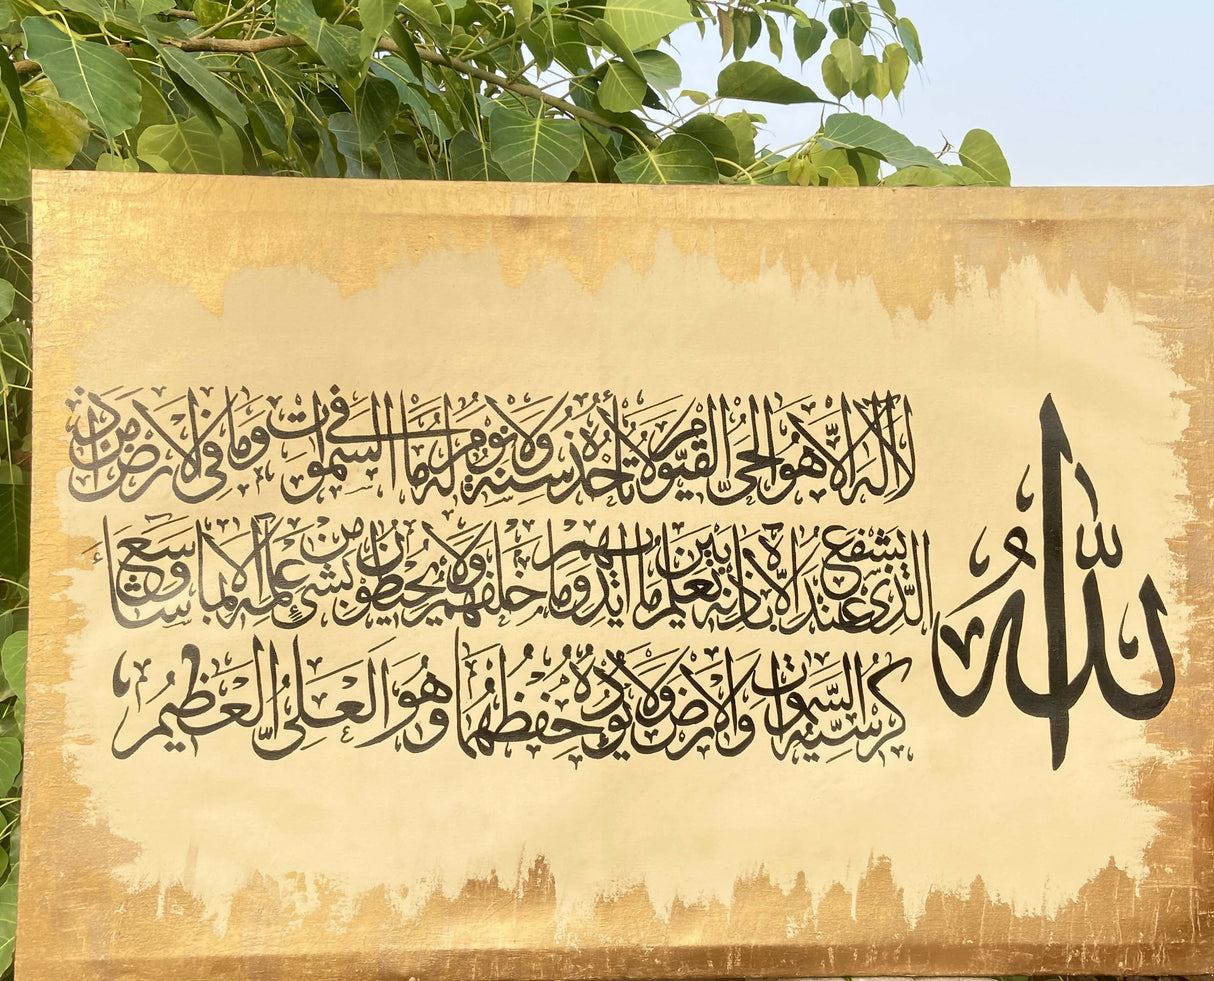 الله
لا إله إلا هو الحي القيوم لا تأخذه سنة ولا نوم له ما في السموات وما في الارض من ذا
الذي يشفع عنده الا باذنه يعلم ما بين ايديهم وما خلفهم ولا يحيطون بشيء من علمه الا بما شاء وسع
كرسيه السموات والارض ولا يوده حفظهما وهو العلي العظيم